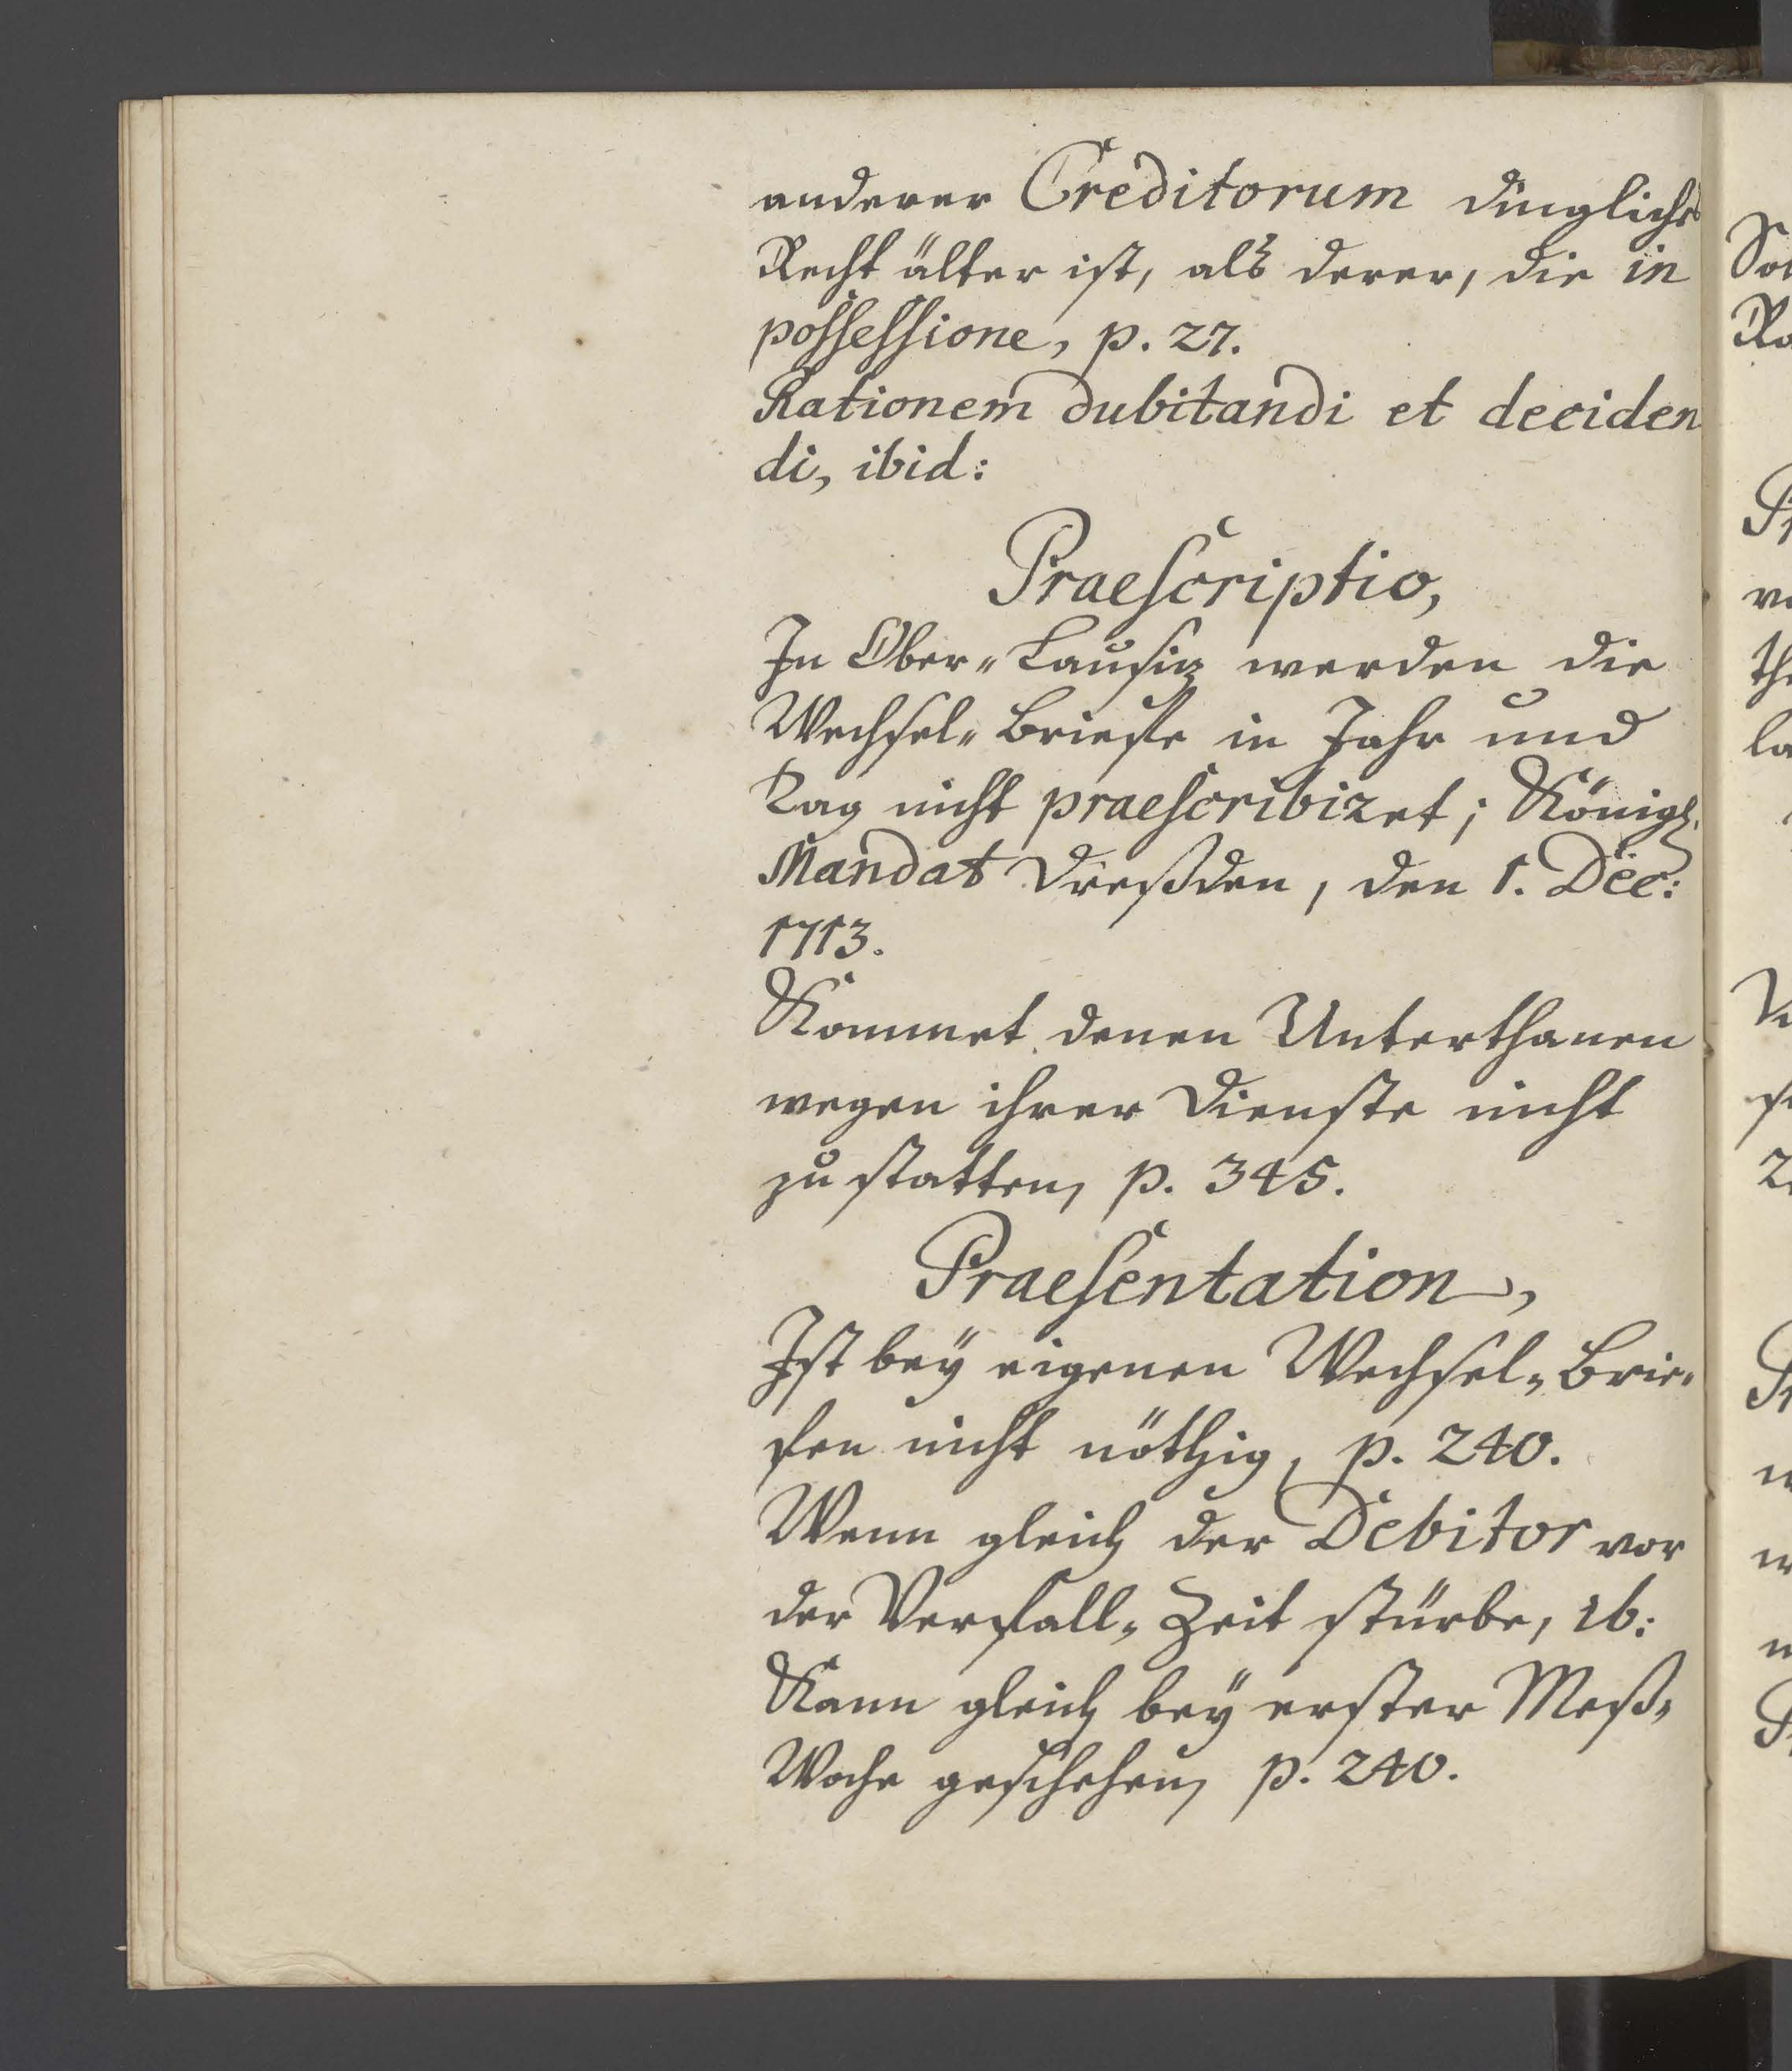 anderer Creditorum dinglichs
Recht älter ist, alß derer, die in
possessione, p. 27.
Rationem dubitandi et deciden
di, ibid:
Praescriptio,
In Ober-Lausiz werden die
Wechsel-Brieffe in Jahr und
Tag nicht praescribiret; Königl.
Mandat Dreßden, den 1. Dec:
1713.
Kommet denen Unterthanen
wegen ihrer Dienste nicht
zu statten, p. 345.
Praesentation,
Ist bey eigenen Wechsel-Brie-
fen nicht nöthig, p. 240.
Wenn gleich der Debitor vor
der Verfall-Zeit stürbe, ib:
Kann gleich bey erster Meß-
Woche geschehen, p. 240.